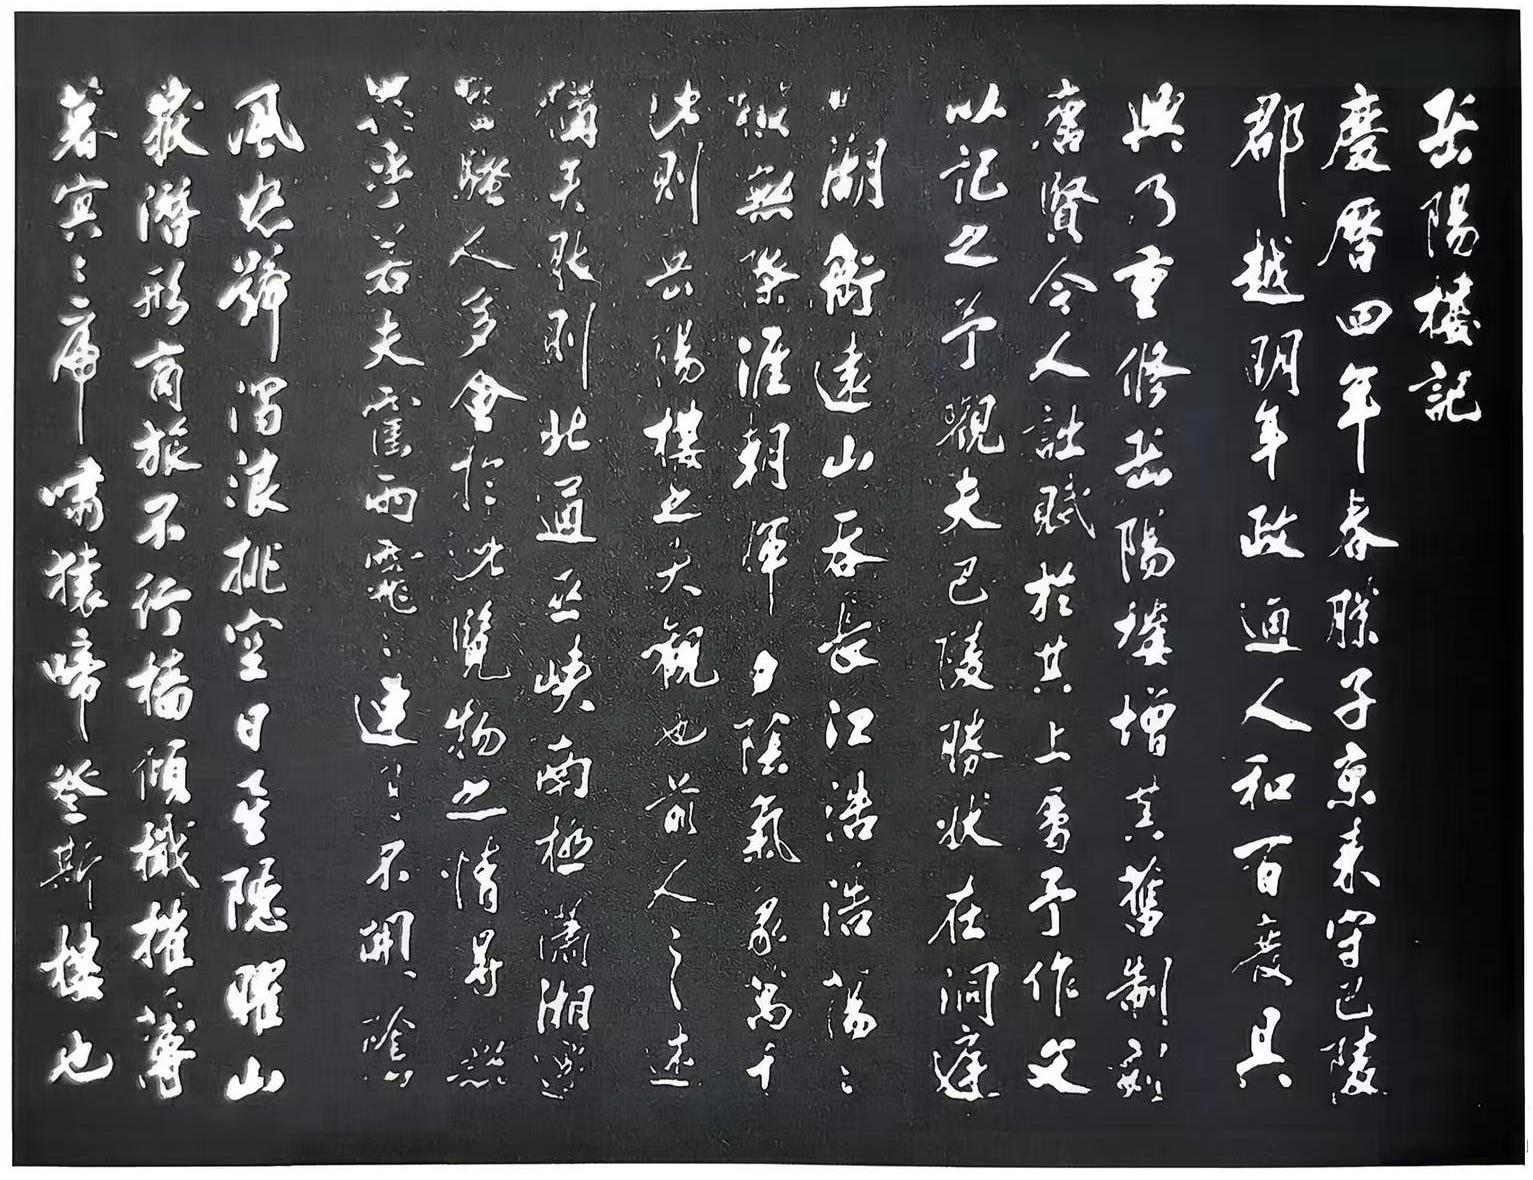 岳陽樓記
慶曆四年春滕子京來守巴陵
郡越明年政通人和百廢具
興乃重修岳陽樓增其舊制刻
唐賢今人詩賦於其上屬予作文
以記之予觀夫巴陵勝狀在洞庭
湖銜遠山吞長江浩浩蕩々
橫無際涯朝暉夕陰氣象萬千
此則岳陽樓之大觀也前人之述
備矣然則北通巫峽南極瀟湘遷
客騷人多會於此覽物之情得無
異乎若夫霪雨霏々連月不開陰
風怒號濁浪排空日星隱曜山
嶽潛形商旅不行檣傾檝摧薄
暮冥々虎嘯猿啼登斯樓也